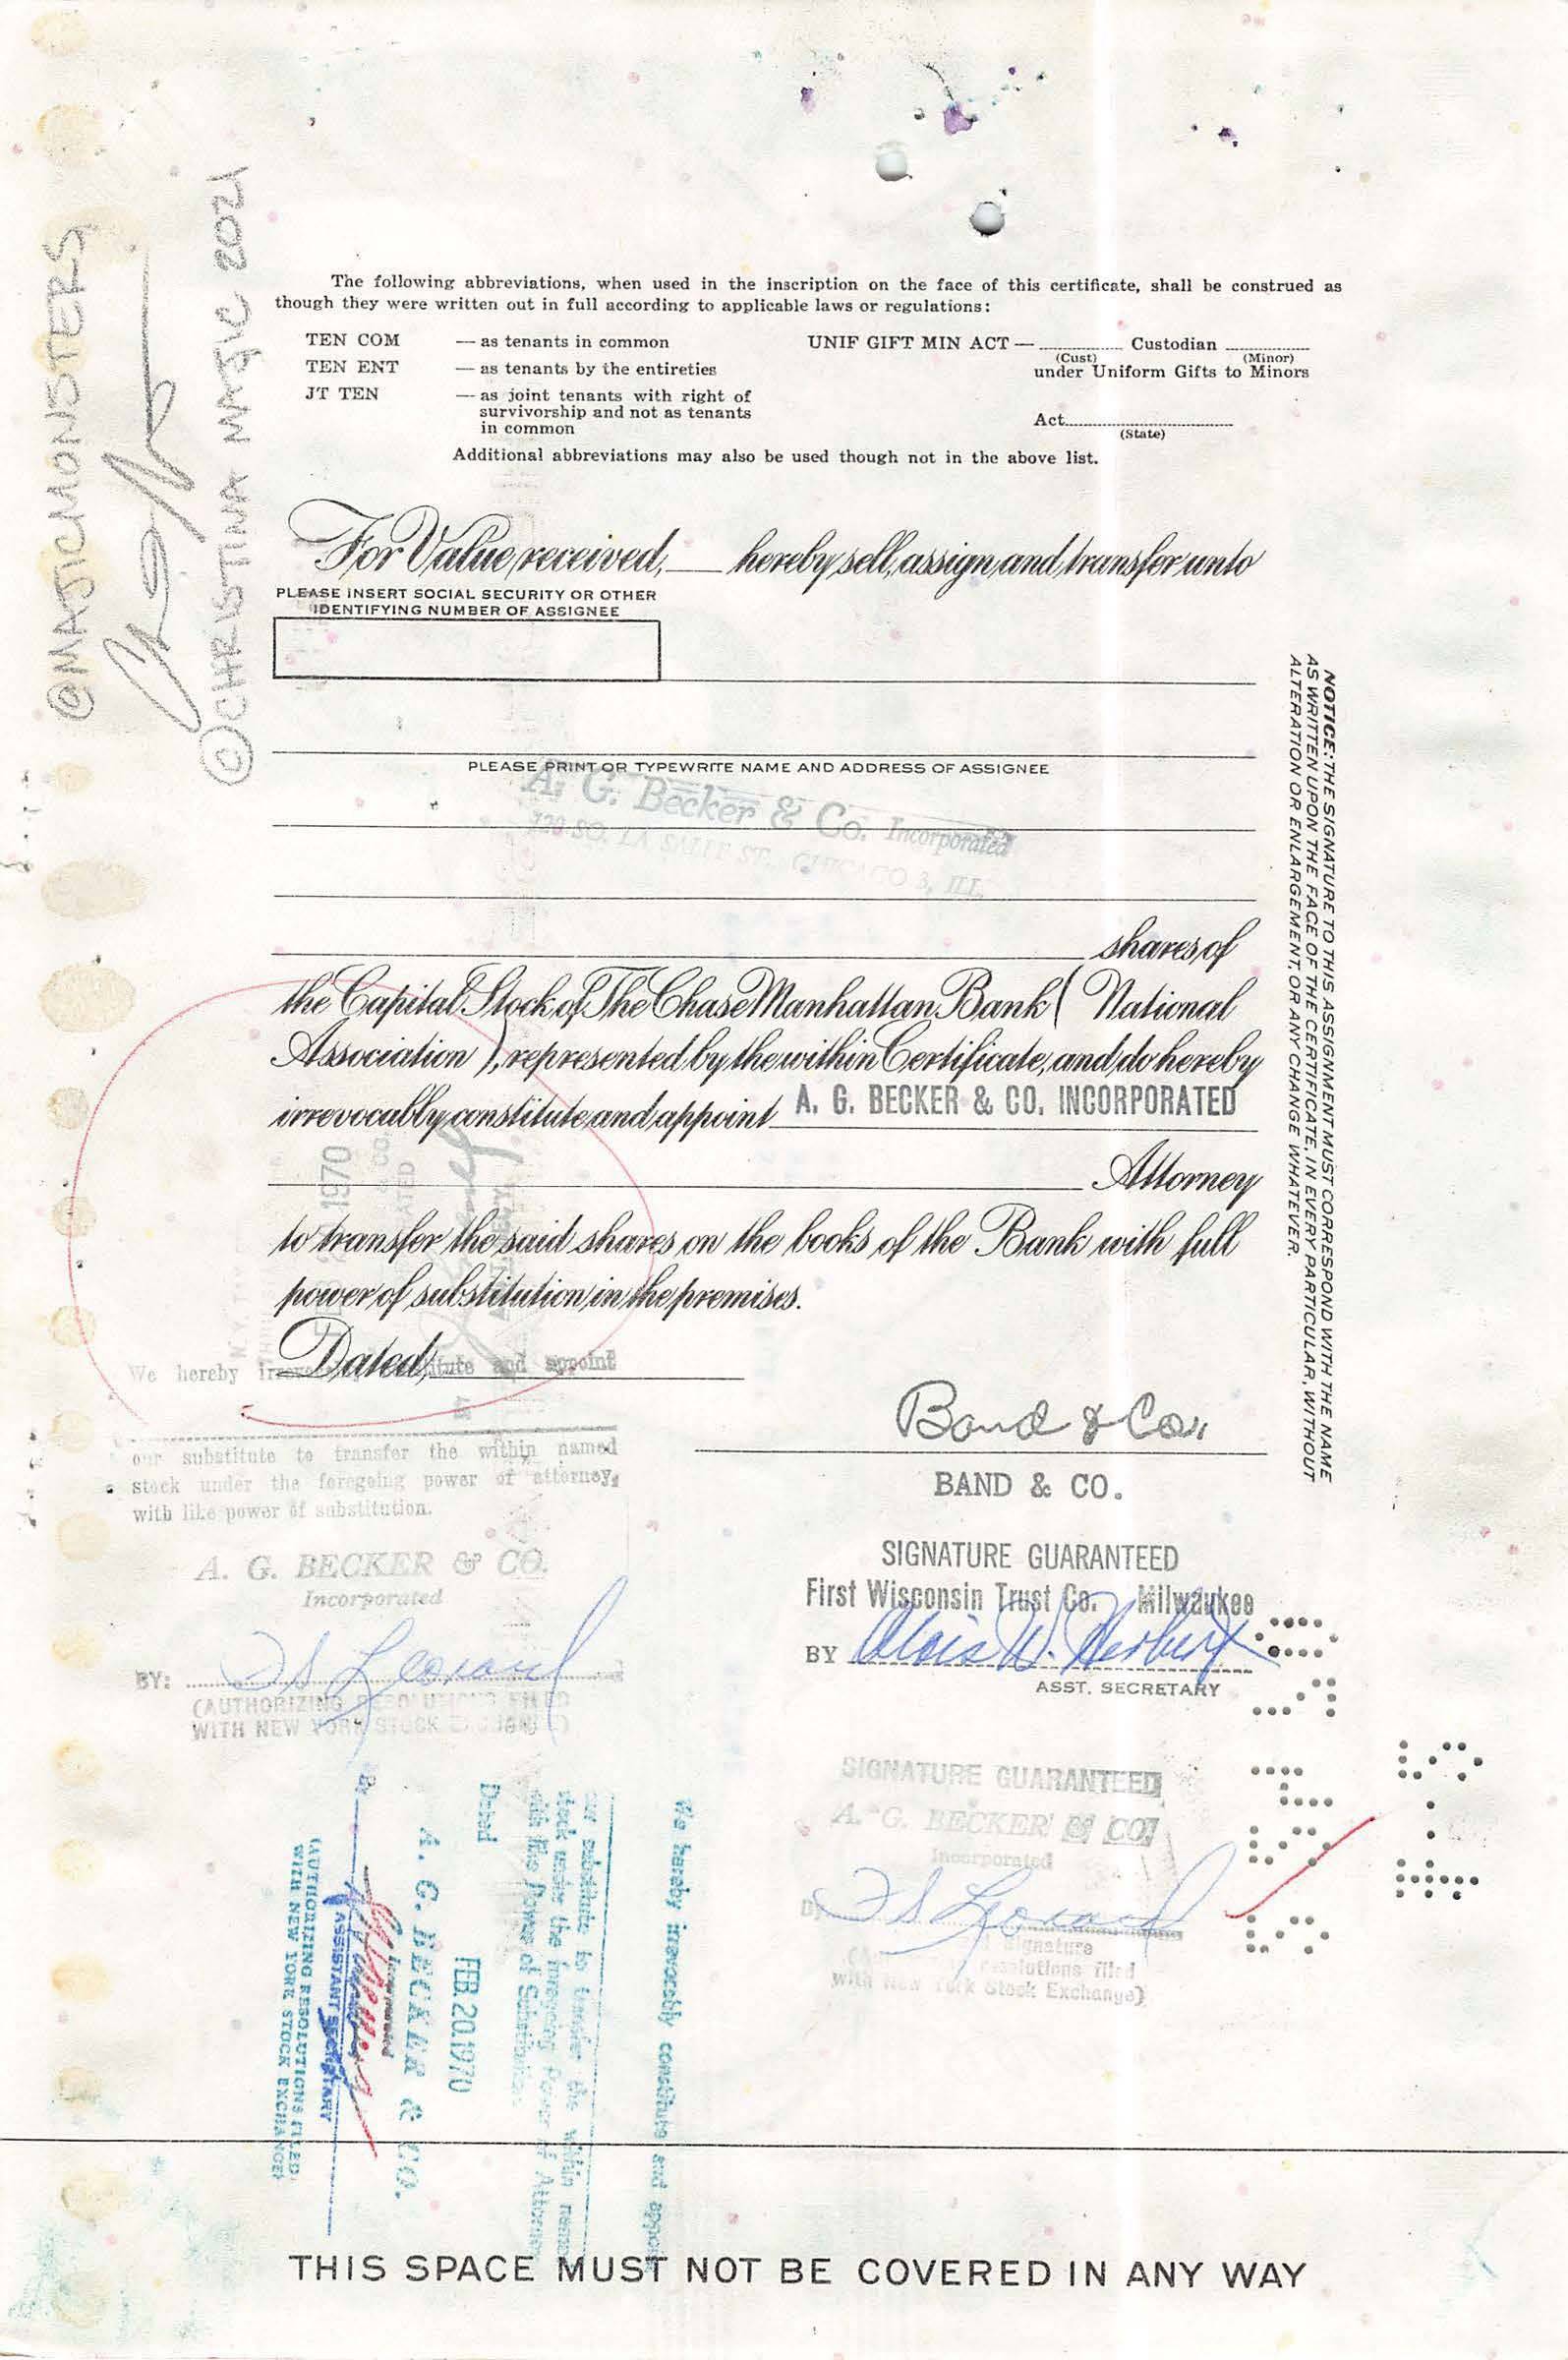 @MAJICMONSTERS
©CHRISTINA MAJIC 2021
The following abbreviations, when used in the inscription on the face of this certificate, shall be construed as
though they were written out in full according to applicable laws or regulations:
TEN COM — as tenants in common
TEN ENT — as tenants by the entireties
JT TEN — as joint tenants with right of
survivorship and not as tenants
in common
UNIF GIFT MIN ACT — Custodian
(Cust) (Minor)
under Uniform Gifts to Minors
Act
(State)
Additional abbreviations may also be used though not in the above list.
For Value received, hereby sell, assign and transfer unto
PLEASE INSERT SOCIAL SECURITY OR OTHER
IDENTIFYING NUMBER OF ASSIGNEE
PLEASE PRINT OR TYPEWRITE NAME AND ADDRESS OF ASSIGNEE
A. G. Becker & Co. Incorporated
120 SO. LA SALLE ST., CHICAGO 3, ILL.
shares of
the Capital Stock of The Chase Manhattan Bank ( National
Association ), represented by the within Certificate, and do hereby
irrevocably constitute and appoint A. G. BECKER & CO. INCORPORATED
Attorney
to transfer the said shares on the books of the Bank with full
power of substitution in the premises.
Dated,
NOTICE: THE SIGNATURE TO THIS ASSIGNMENT MUST CORRESPOND WITH THE NAME
AS WRITTEN UPON THE FACE OF THE CERTIFICATE, IN EVERY PARTICULAR, WITHOUT
ALTERATION OR ENLARGEMENT, OR ANY CHANGE WHATEVER.
1970
We hereby and appoint
our substitute to transfer the within named
stock under the foregoing power of attorney,
with like power of substitution.
A. G. BECKER & CO.
Incorporated
BY:
(AUTHORIZING RESOLUTIONS FILED
WITH NEW YORK STOCK EXCHANGE)
Band & Co.
BAND & CO.
SIGNATURE GUARANTEED
First Wisconsin Trust Co. Milwaukee
BY Alois W. Herbert
ASST. SECRETARY
SIGNATURE GUARANTEED
A. G. BECKER & CO.
Incorporated
Signature
resolutions filed
with New York Stock Exchange)
We hereby irrevocably constitute and appoint
our substitute to transfer the within named
stock under the foregoing Power of Attorney
with like Power of Substitution
Dated FEB. 20. 1970
A. G. BECKER & CO.
Incorporated
By
ASSISTANT SECRETARY
(AUTHORIZING RESOLUTIONS FILED
WITH NEW YORK STOCK EXCHANGE)
THIS SPACE MUST NOT BE COVERED IN ANY WAY